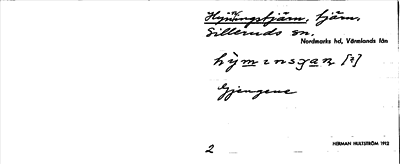 Hyningstjärn, tjärn.
Silleruds sn.
Nordmarks hd, Värmlands län
Gjengene
2 HERMAN HULTSTRÖM 1912